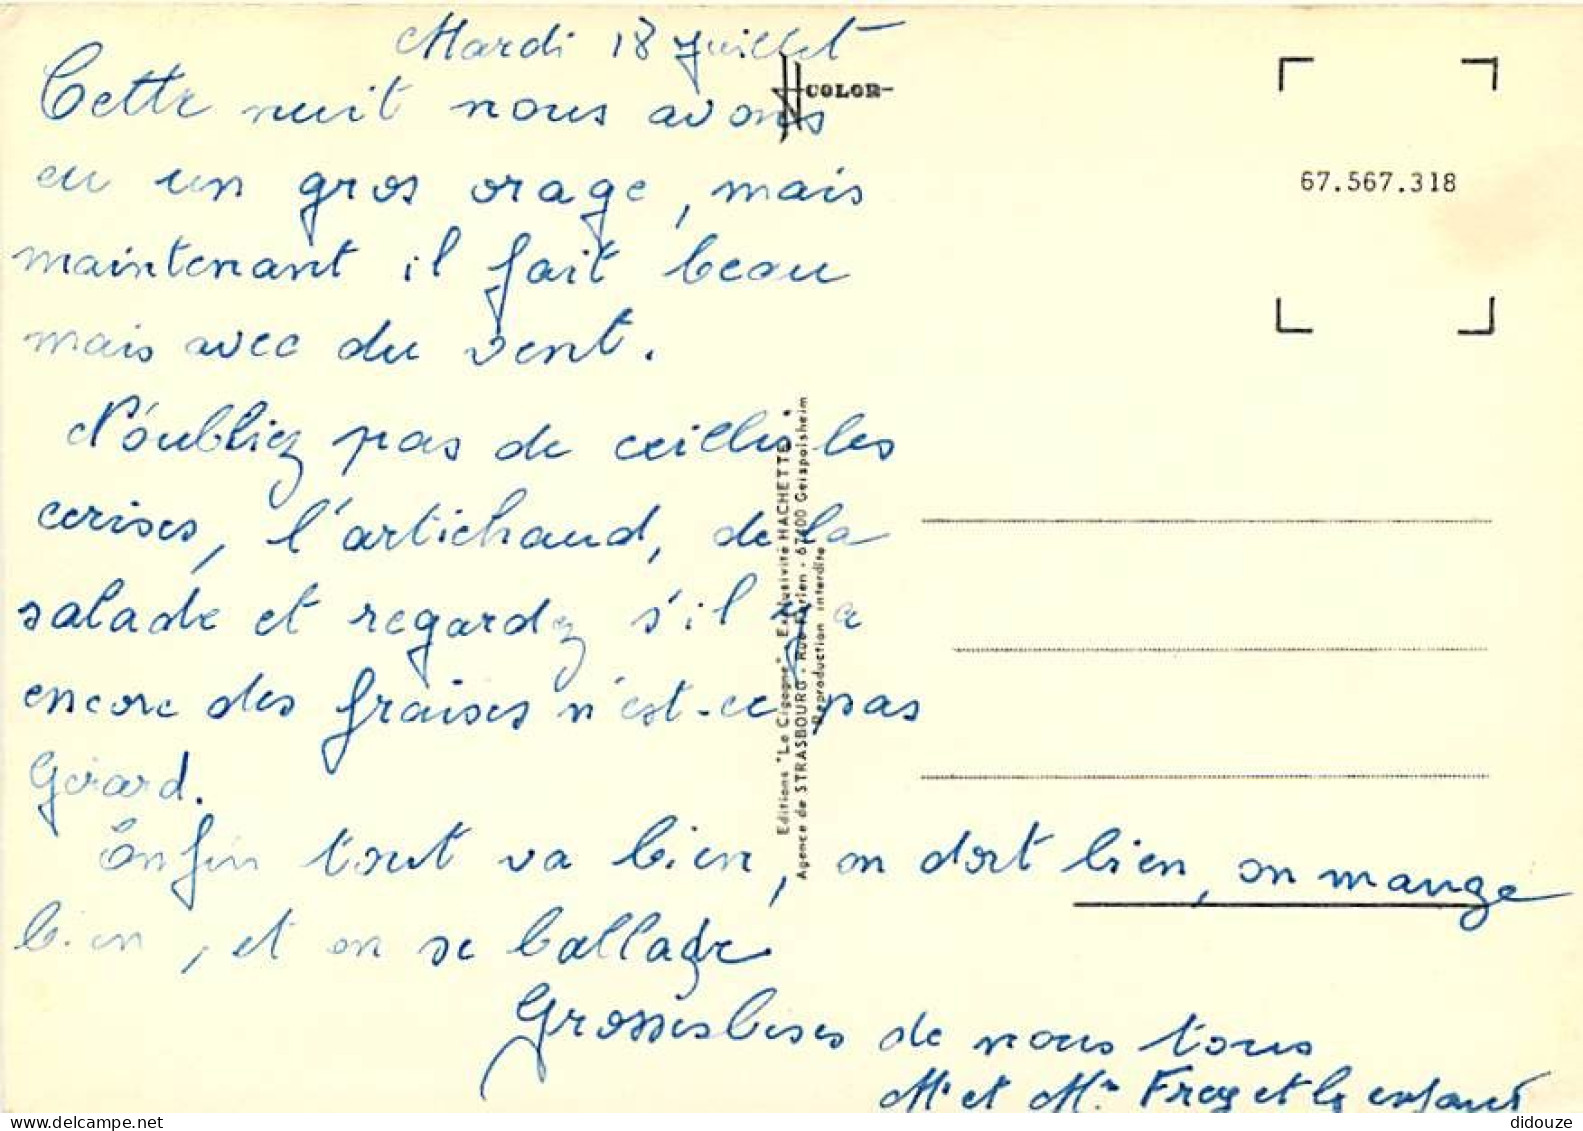 Mardi 18 Juillet
Cette nuit nous avons
eu un gros orage, mais
maintenant il fait beau
mais avec du vent.
N'oubliez pas de ceillir les
cerises, l'artichaud, de la
salade et regardez s'il y a
encore des fraises n'est-ce pas
Gérard.
Enfin tout va bien, on dort bien, on mange
bien, et on se ballade
Grosses bises de nous tous
Mr et Mme Frey et les enfants
COLOR-
67.567.318
Editions "La Cigogne". Exclusivité HACHETTE.
Agence de STRASBOURG - Rue - 67400 Geispolsheim
Reproduction interdite
didouze